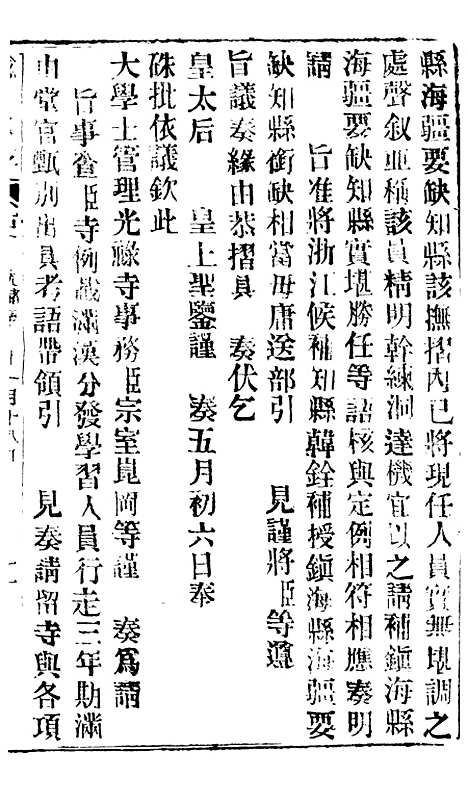 縣海疆要缺知縣該撫摺內已將現任人員實無堪調之
處聲叙並稱該員精明幹練洞達機宜以之請補鎭海縣
海疆要缺知縣實堪勝任等語核與定例相符相應奏明
請 旨准將浙江候補知縣韓銓補授鎭海縣海疆要
缺知縣銜缺相當毋庸送部引 見謹將臣等遵
旨議奏緣由恭摺具 奏伏乞
皇太后 皇上聖鑒謹 奏五月初六日奉
硃批依議欽此
大學士管理光祿寺事務臣宗室崑岡等謹 奏爲請
旨事查臣寺例載滿漢分發學習人員行走三年期滿
由堂官甄別出具考語帶領引 見奏請留寺與各項